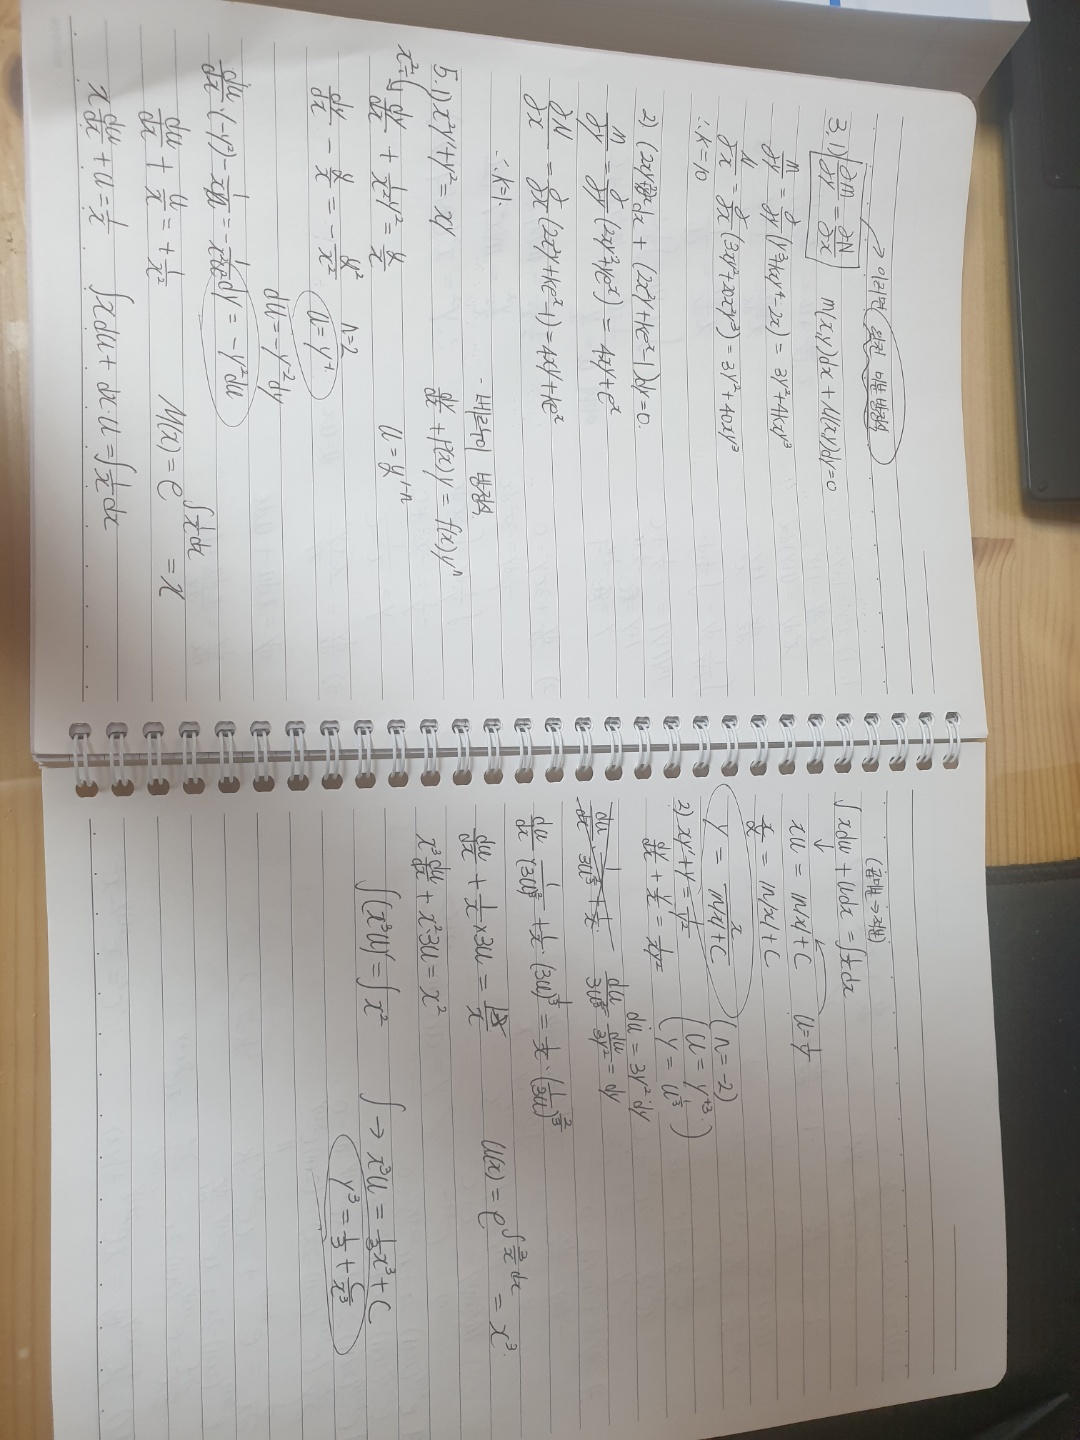 → 이러면 완전 미분 방정식
3. 1) ∂M/∂y = ∂N/∂x   m(x,y)dx + N(x,y)dy=0
M/∂y = ∂/∂y (y³+kxy⁴-2x) = 3y²+4kxy³
N/∂x = ∂/∂x (3xy²+20x²y³) = 3y²+40xy³
∴ k=10
2) (2xy²+ye^x)dx + (2x²y+ke^x-1)dy=0
M/∂y = ∂/∂y (2xy²+ye^x) = 4xy+e^x
∂N/∂x = ∂/∂x (2x²y+ke^x-1) = 4xy+ke^x
∴ k=1
- 베르누이 방정식
5. 1) x²y'+y² = xy   dy/dx + P(x)y = f(x)yⁿ
x²÷( dy/dx + 1/x² y² = y/x   u = y^(1-n)
dy/dx - y/x = - y²/x²   n=2
u = y⁻¹
du = -y⁻² dy
du/dx·(-y²) - 1/xu = - 1/x²u²   dy = -y²du
du/dx + u/x = + 1/x²   M(x) = e^(∫1/x dx) = x
x du/dx + u = 1/x   ∫xdu + dx·u = ∫1/x dx
∫xdu + udx = ∫1/x dx
xu = ln|x| + C   u = 1/y
x/y = ln|x| + C
y = x/(ln|x|+C)   (n=-2)
2) xy'+y = 1/y²   (u = y⁺³
dy/dx + y/x = 1/xy²   y = u^(1/3) )
du = 3y²·dy
du/dx · (3u)^(2/3) + 1/x · (3u)^(1/3) = 1/x · (1/3u)^(2/3)
du/dx + 1/x × 3u = 3/x   U(x) = e^(∫3/x dx) = x³
x³ du/dx + x²·3u = x²
∫(x³u)' = ∫x²   ∫ → x³u = 1/3 x³ + C
y³ = 1/3 + C/x³